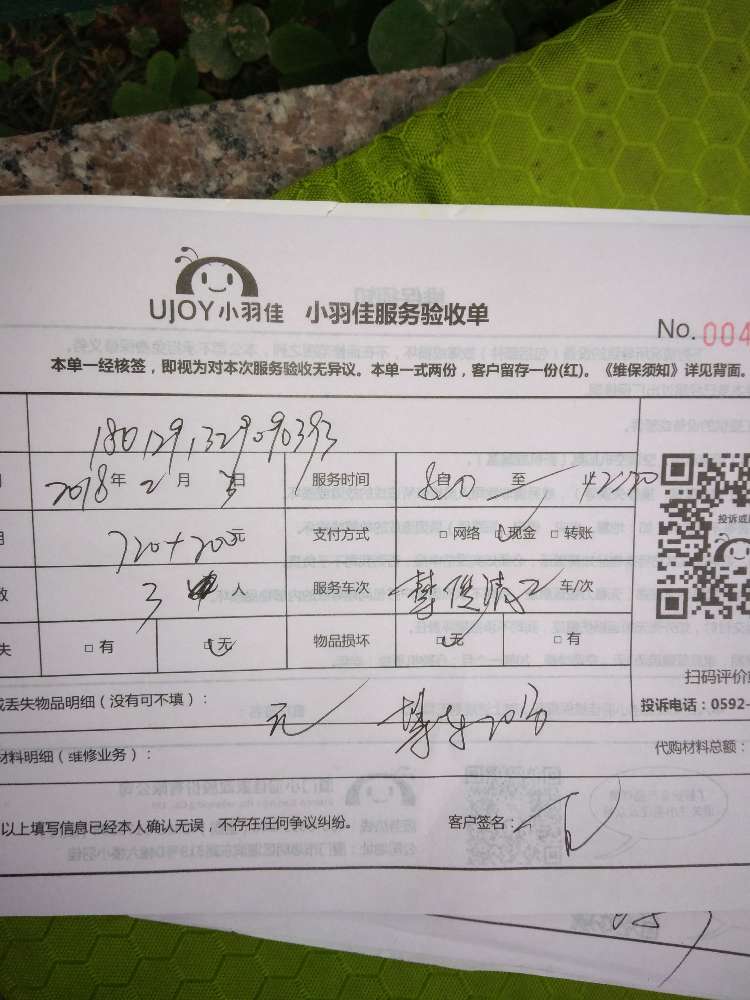 UJOY小羽佳 小羽佳服务验收单
No. 004
本单一经核签，即视为对本次服务验收无异议。本单一式两份，客户留存一份(红)。《维保须知》详见背面。
180129132909 0393
2018年2月3日 服务时间 800自 至 止 1200
720+200元 支付方式 □网络 □现金 □转账
数 3 人 服务车次 车/次
失 □有 □无 物品损坏 □无 □有
投诉或
扫码评价
或丢失物品明细（没有可不填）： 无
投诉电话：0592-
材料明细（维修业务）：
代购材料总额：
以上填写信息已经本人确认无误，不存在任何争议纠纷。 客户签名：